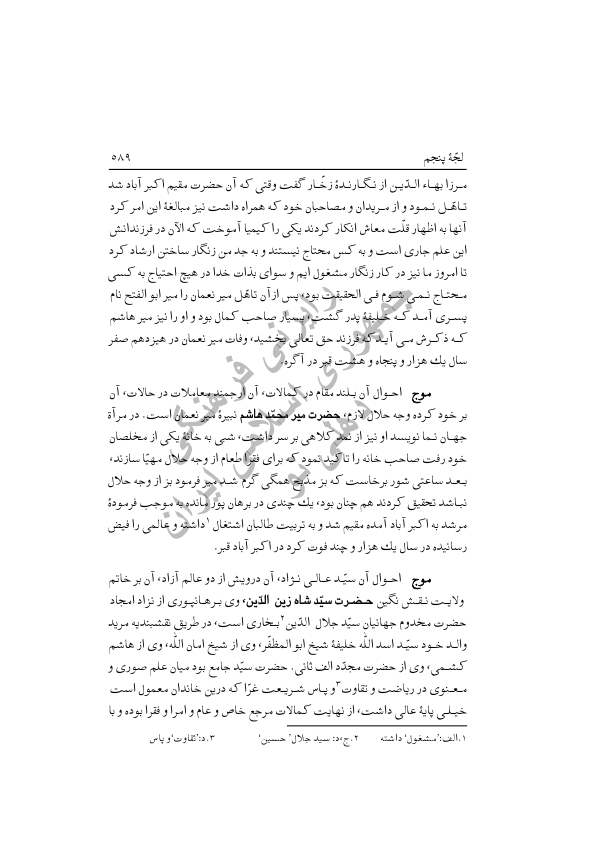 لجّهٔ پنجم ۵۸۹
مرزا بهاء الدّین از نگارندهٔ زخّار گفت وقتی که آن حضرت مقیم اکبر آباد شد
تاهّل نمود و از مریدان و مصاحبان خود که همراه داشت نیز مبالغهٔ این امر کرد
آنها به اظهار قلّت معاش انکار کردند یکی را کیمیا آموخت که الآن در فرزندانش
این علم جاری است و به کس محتاج نیستند و به جد من زنگار ساختن ارشاد کرد
تا امروز ما نیز در کار زنگار مشغول ایم و سوای بذات خدا در هیچ احتیاج به کسی
محتاج نمی شوم فی الحقیقت بود، پس از آن تاهّل میر نعمان را میر ابو الفتح نام
پسری آمد که خلیفهٔ پدر گشت، بسیار صاحب کمال بود و او را نیز میر هاشم
که ذکرش می آید که فرزند حق تعالی بخشید، وفات میر نعمان در هیزدهم صفر
سال یك هزار و پنجاه و هشت قبر در آگره.
موج احوال آن بلند مقام در کمالات، آن ارجمند معاملات در حالات، آن
بر خود کرده وجه حلال لازم، حضرت میر محمّد هاشم نبیرهٔ میر نعمان است. در مرآة
جهان نما نویسد او نیز از نمد کلاهی بر سر داشت، شبی به خانهٔ یکی از مخلصان
خود رفت صاحب خانه را تاکید نمود که برای فقرا طعام از وجه حلال مهیّا سازند،
بعد ساعتی شور برخاست که بز مذبح همگی گرم شد میر فرمود بز از وجه حلال
نباشد تحقیق کردند هم چنان بود، یك چندی در برهان پور مانده به موجب فرمودهٔ
مرشد به اکبر آباد آمده مقیم شد و به تربیت طالبان اشتغال۱ داشته و عالمی را فیض
رسانیده در سال یك هزار و چند فوت کرد در اکبر آباد قبر.
موج احوال آن سیّد عالی نژاد، آن درویش از دو عالم آزاد، آن بر خاتم
ولایت نقش نگین حضرت سیّد شاه زین الدّین، وی برهانپوری از نزاد امجاد
حضرت مخدوم جهانیان سیّد جلال الدّین۲ بخاری است، در طریق نقشبندیه مرید
والد خود سیّد اسد اللّه خلیفهٔ شیخ ابو المظفّر، وی از شیخ امان اللّه، وی از هاشم
کشمی، وی از حضرت مجدّد الف ثانی. حضرت سیّد جامع بود میان علم صوری و
معنوی در ریاضت و نقاوت۳ و پاس شریعت غرّا که درین خاندان معمول است
خیلی پایهٔ عالی داشت، از نهایت کمالات مرجع خاص و عام و امرا و فقرا بوده و با
۱.الف:’مشغول‘ داشته ۲.ج،د: سید جلال’ حسین‘ ۳.د:’ثقاوت‘و پاس